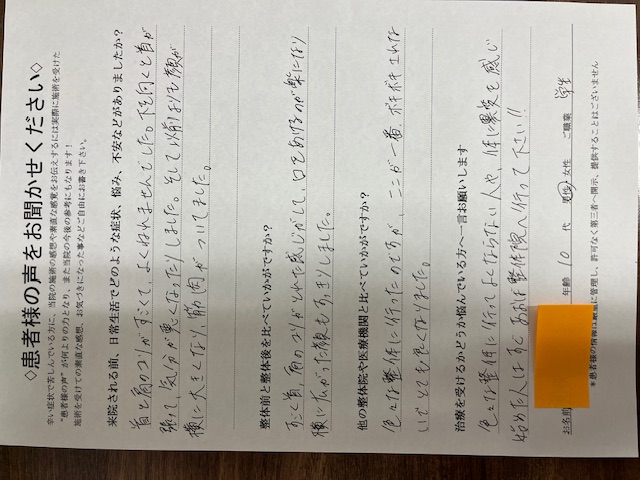 ◇患者様の声をお聞かせください◇
辛い症状で苦しんでいる方に、当院の施術の感想や素直な感覚をお伝えするには実際に施術を受けた
"患者様の声"が何よりの力となり、また当院の今後の参考にもなります！
施術を受けての素直な感想、お気づきになった事などご自由にお書き下さい。
来院される前、日常生活でどのような症状、悩み、不安などがありましたか？
首と肩のコリがすごくて、よくねれませんでした。下を向くと首が
張って、気分が悪くなったりしました。そして以前よりも顔が
横に大きくなり、筋肉がついてました。
整体前と整体後を比べていかがですか？
すごく首、肩のコリがとれた感じがして、口をあけるのが楽になり
横に広がった顔もすっきりしました。
他の整体院や医療機関と比べていかがですか？
色々な整体に行ったのですが、ここが一番、ボキボキされな
いでとても良くなりました。
治療を受けるかどうか悩んでいる方へ一言お願いします
色々な整体に行ってよくならない人や、体に異変を感じ
始めた人はすぐ 整体院へ行って下さい!!
お名前 年齢 10 代 男性 女性 ご職業 学生
*患者様の情報は厳重に管理し、許可なく第三者へ開示、提供することはございません